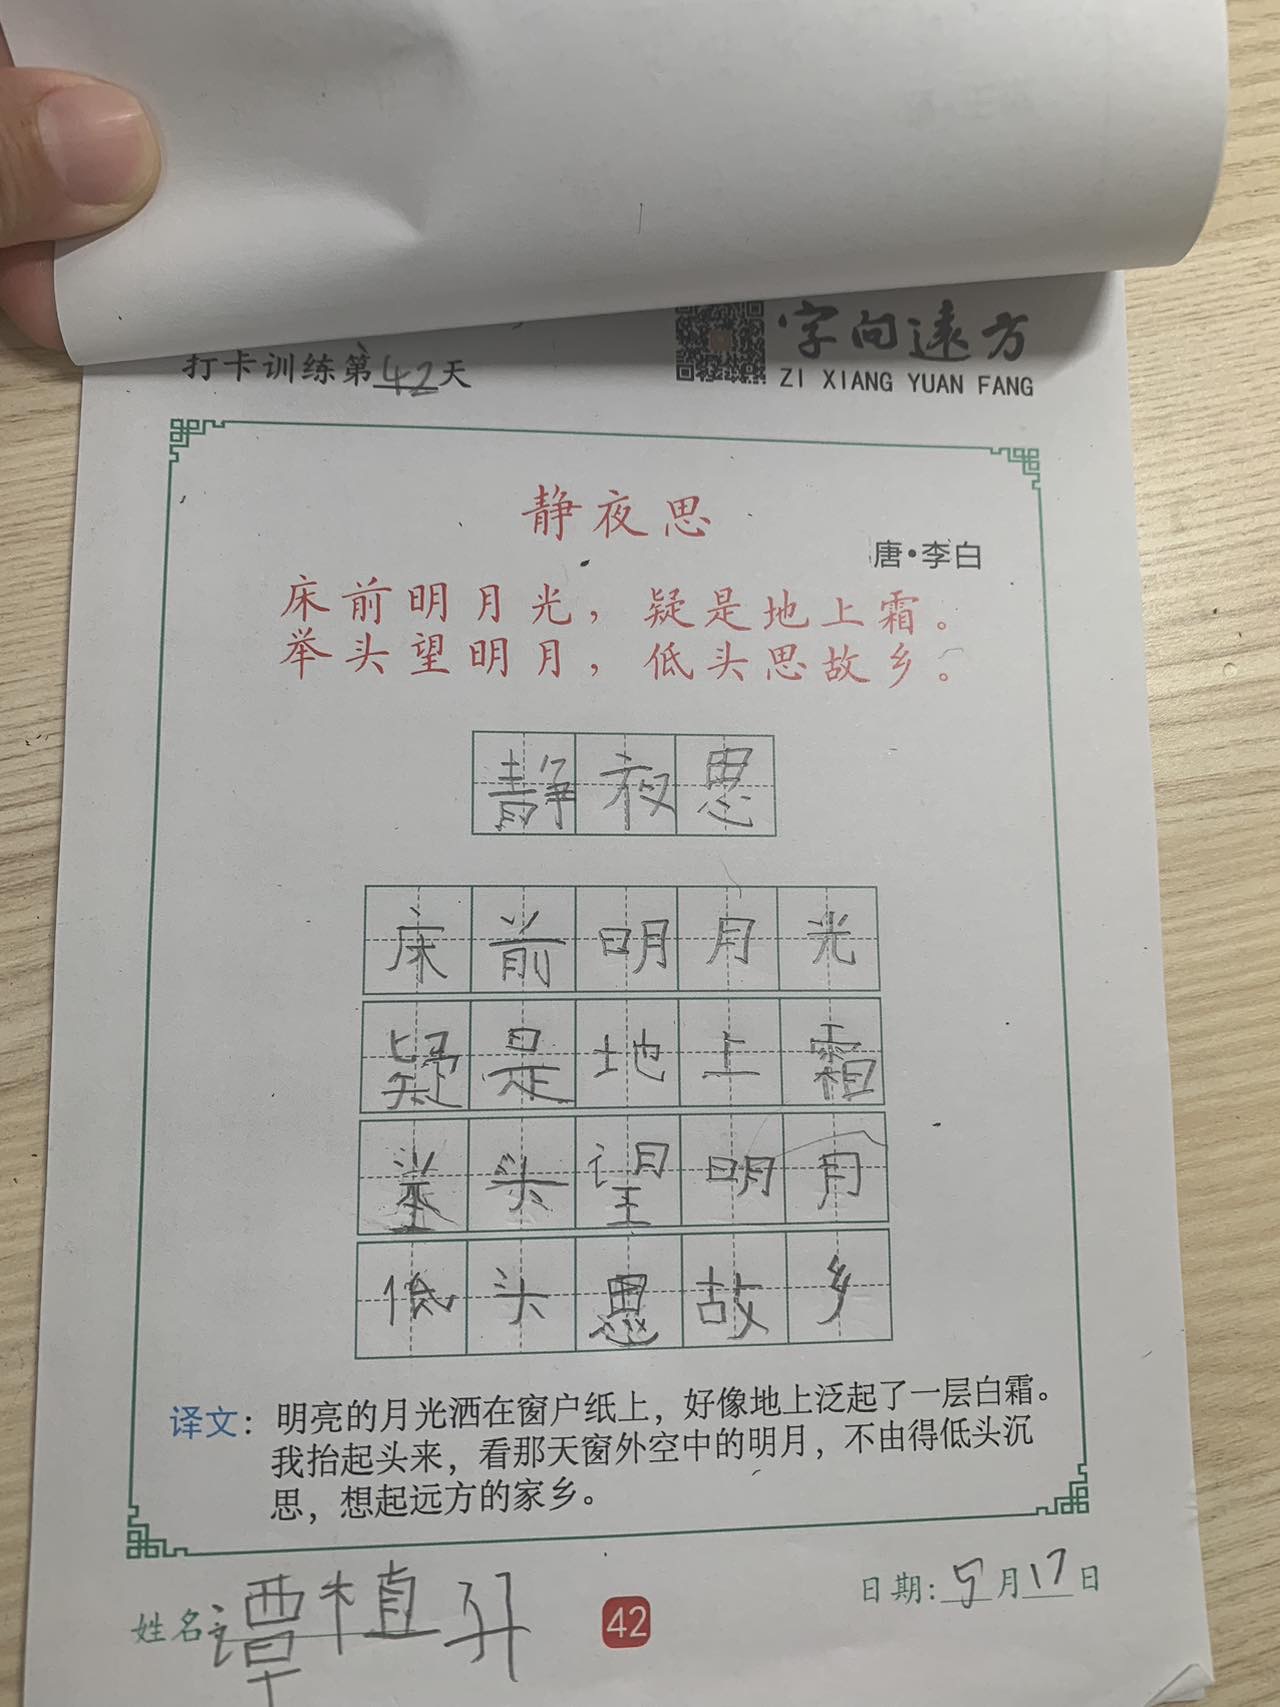 打卡训练第42天
字向远方
ZI XIANG YUAN FANG
静夜思
唐·李白
床前明月光，疑是地上霜。
举头望明月，低头思故乡。
静夜思
床前明月光
疑是地上霜
举头望明月
低头思故乡
译文：明亮的月光洒在窗户纸上，好像地上泛起了一层白霜。
我抬起头来，看那天窗外空中的明月，不由得低头沉
思，想起远方的家乡。
姓名 谭植升
42
日期：5月17日